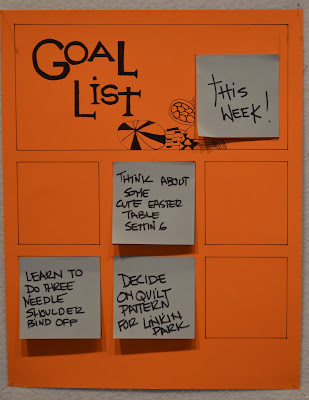 GOAL
LIST
THIS
WEEK!
THINK ABOUT
SOME
CUTE EASTER
TABLE
SETTING
LEARN TO
DO THREE
NEEDLE
SHOULDER
BIND OFF
DECIDE
ON QUILT
PATTERN
FOR LINKIN
PARK